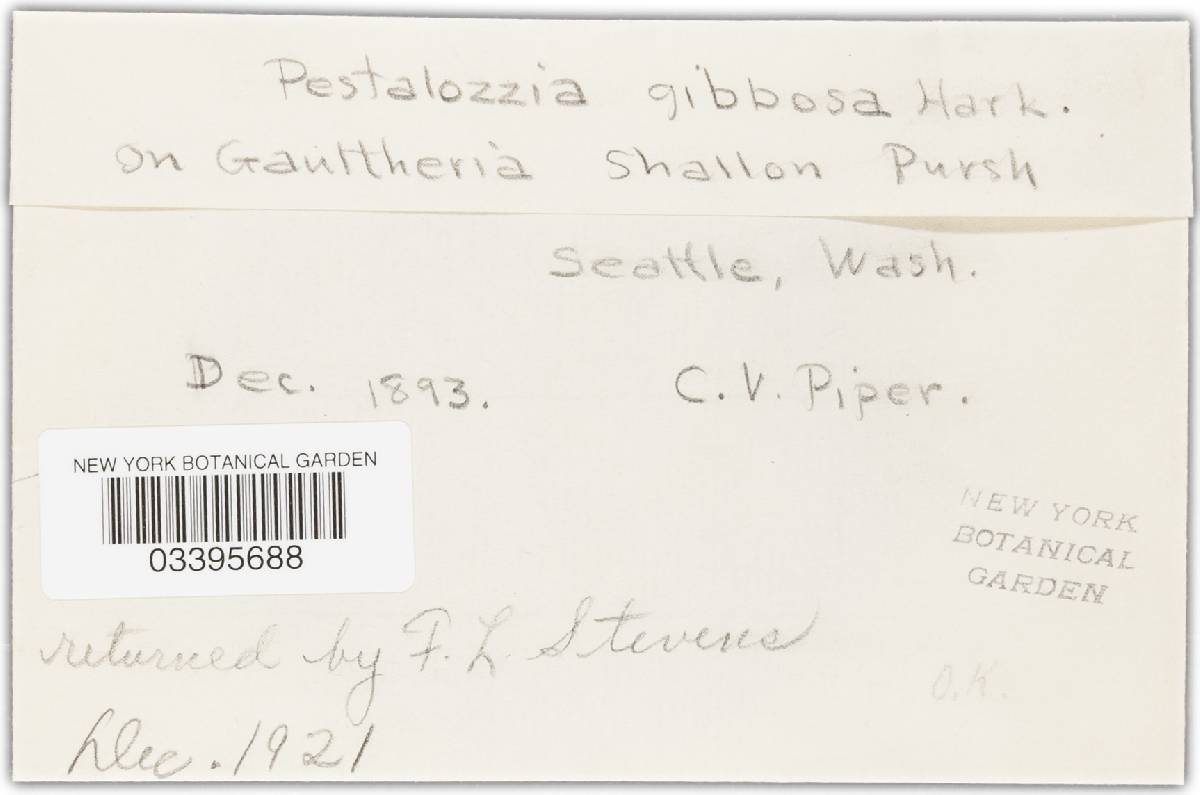 Pestalozzia gibbosa Hark.
on Gaultheria Shallon Pursh
Seattle, Wash.
Dec. 1893. C. V. Piper.
NEW YORK BOTANICAL GARDEN
03395688
NEW YORK
BOTANICAL
GARDEN
returned by F. L. Stevens
O.K.
Dec. 1921